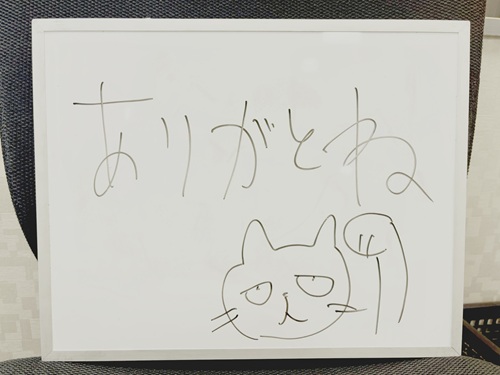 ありがとね